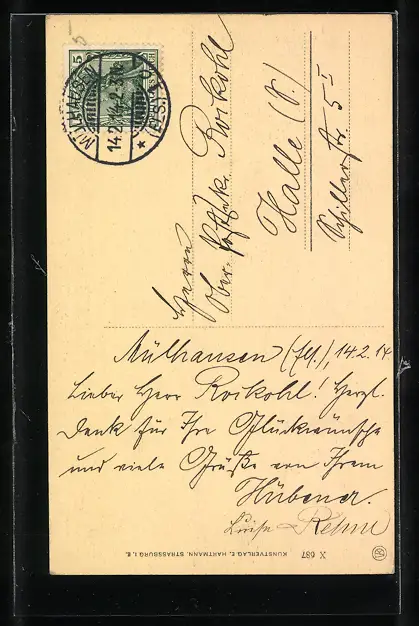 5
MÜLHAUSEN
14.2.14.
(ELS.)
Herrn
Ober-Postsekr. Roikohl
Halle (S.)
Schillerstr 5 I
Mülhausen (Els.), 14.2.14
Lieber Herr Roikohl! Herzl.
Dank für Ihre Glückwünsche
und viele Grüße von Ihrem
Hübener.
Luise Rehm
KUNSTVERLAG, E. HARTMANN, STRASSBURG, I. E.
X 687